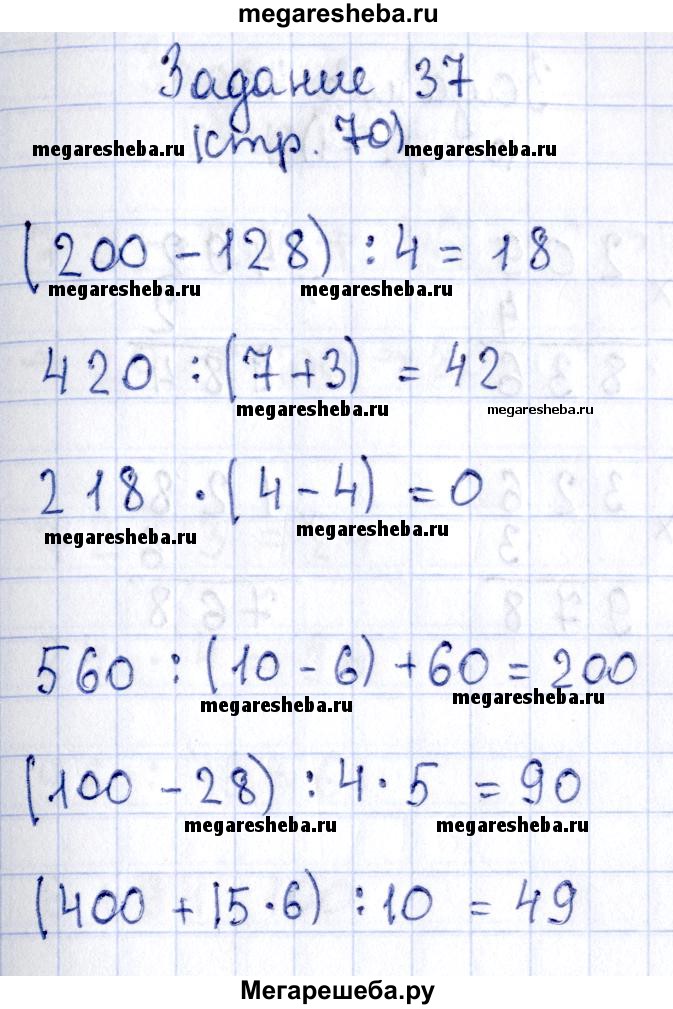 megaresheba.ru
Задание 37
megaresheba.ru (стр. 70) megaresheba.ru
(200 - 128) : 4 = 18
megaresheba.ru megaresheba.ru
420 : (7+3) = 42
megaresheba.ru megaresheba.ru
218 · (4 - 4) = 0
megaresheba.ru megaresheba.ru
560 : (10 - 6) + 60 = 200
megaresheba.ru megaresheba.ru
(100 - 28) : 4 · 5 = 90
megaresheba.ru megaresheba.ru
(400 + 15 · 6) : 10 = 49
Мегарешеба.ру